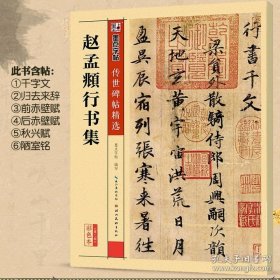 此书含帖:
①千字文
②归去来辞
③前赤壁赋
④后赤壁赋
⑤秋兴赋
⑥陋室铭
墨点字帖
传世碑帖精选
赵孟頫行书集
彩色本
行書千文
梁員外散騎侍郎周興嗣次韻
天地玄黄宇宙洪荒日月
盈昃辰宿列張寒来暑往